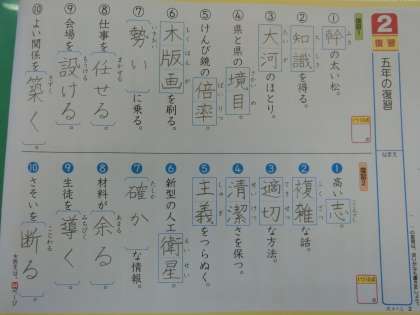 2
復習
五年の復習
復習1
①幹の太い松。
②知識を得る。
③大河のほとり。
④県と県の境目。
⑤けんび鏡の倍率。
⑥木版画を刷る。
⑦勢いに乗る。
⑧仕事を任せる。
⑨会場を設ける。
⑩よい関係を築く。
復習2
❶高い志。
❷複雑な話。
❸適切な方法。
❹清潔さを保つ。
❺主義をつらぬく。
❻新型の人工衛星。
❼確かな情報。
❽材料が余る。
❾生徒を導く。
❿さそいを断る。